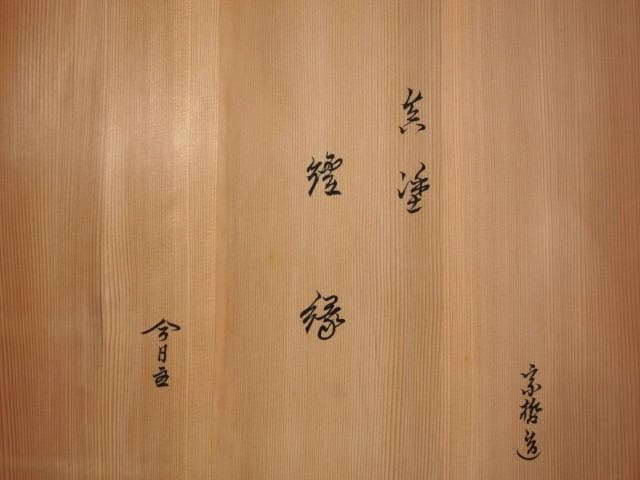 宗哲造
真塗
爐縁
今日主